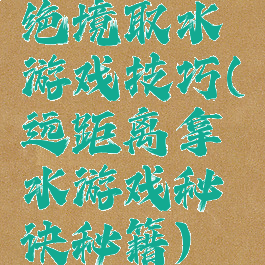 绝境取水
游戏技巧(
远距离拿
水游戏秘
诀秘籍)